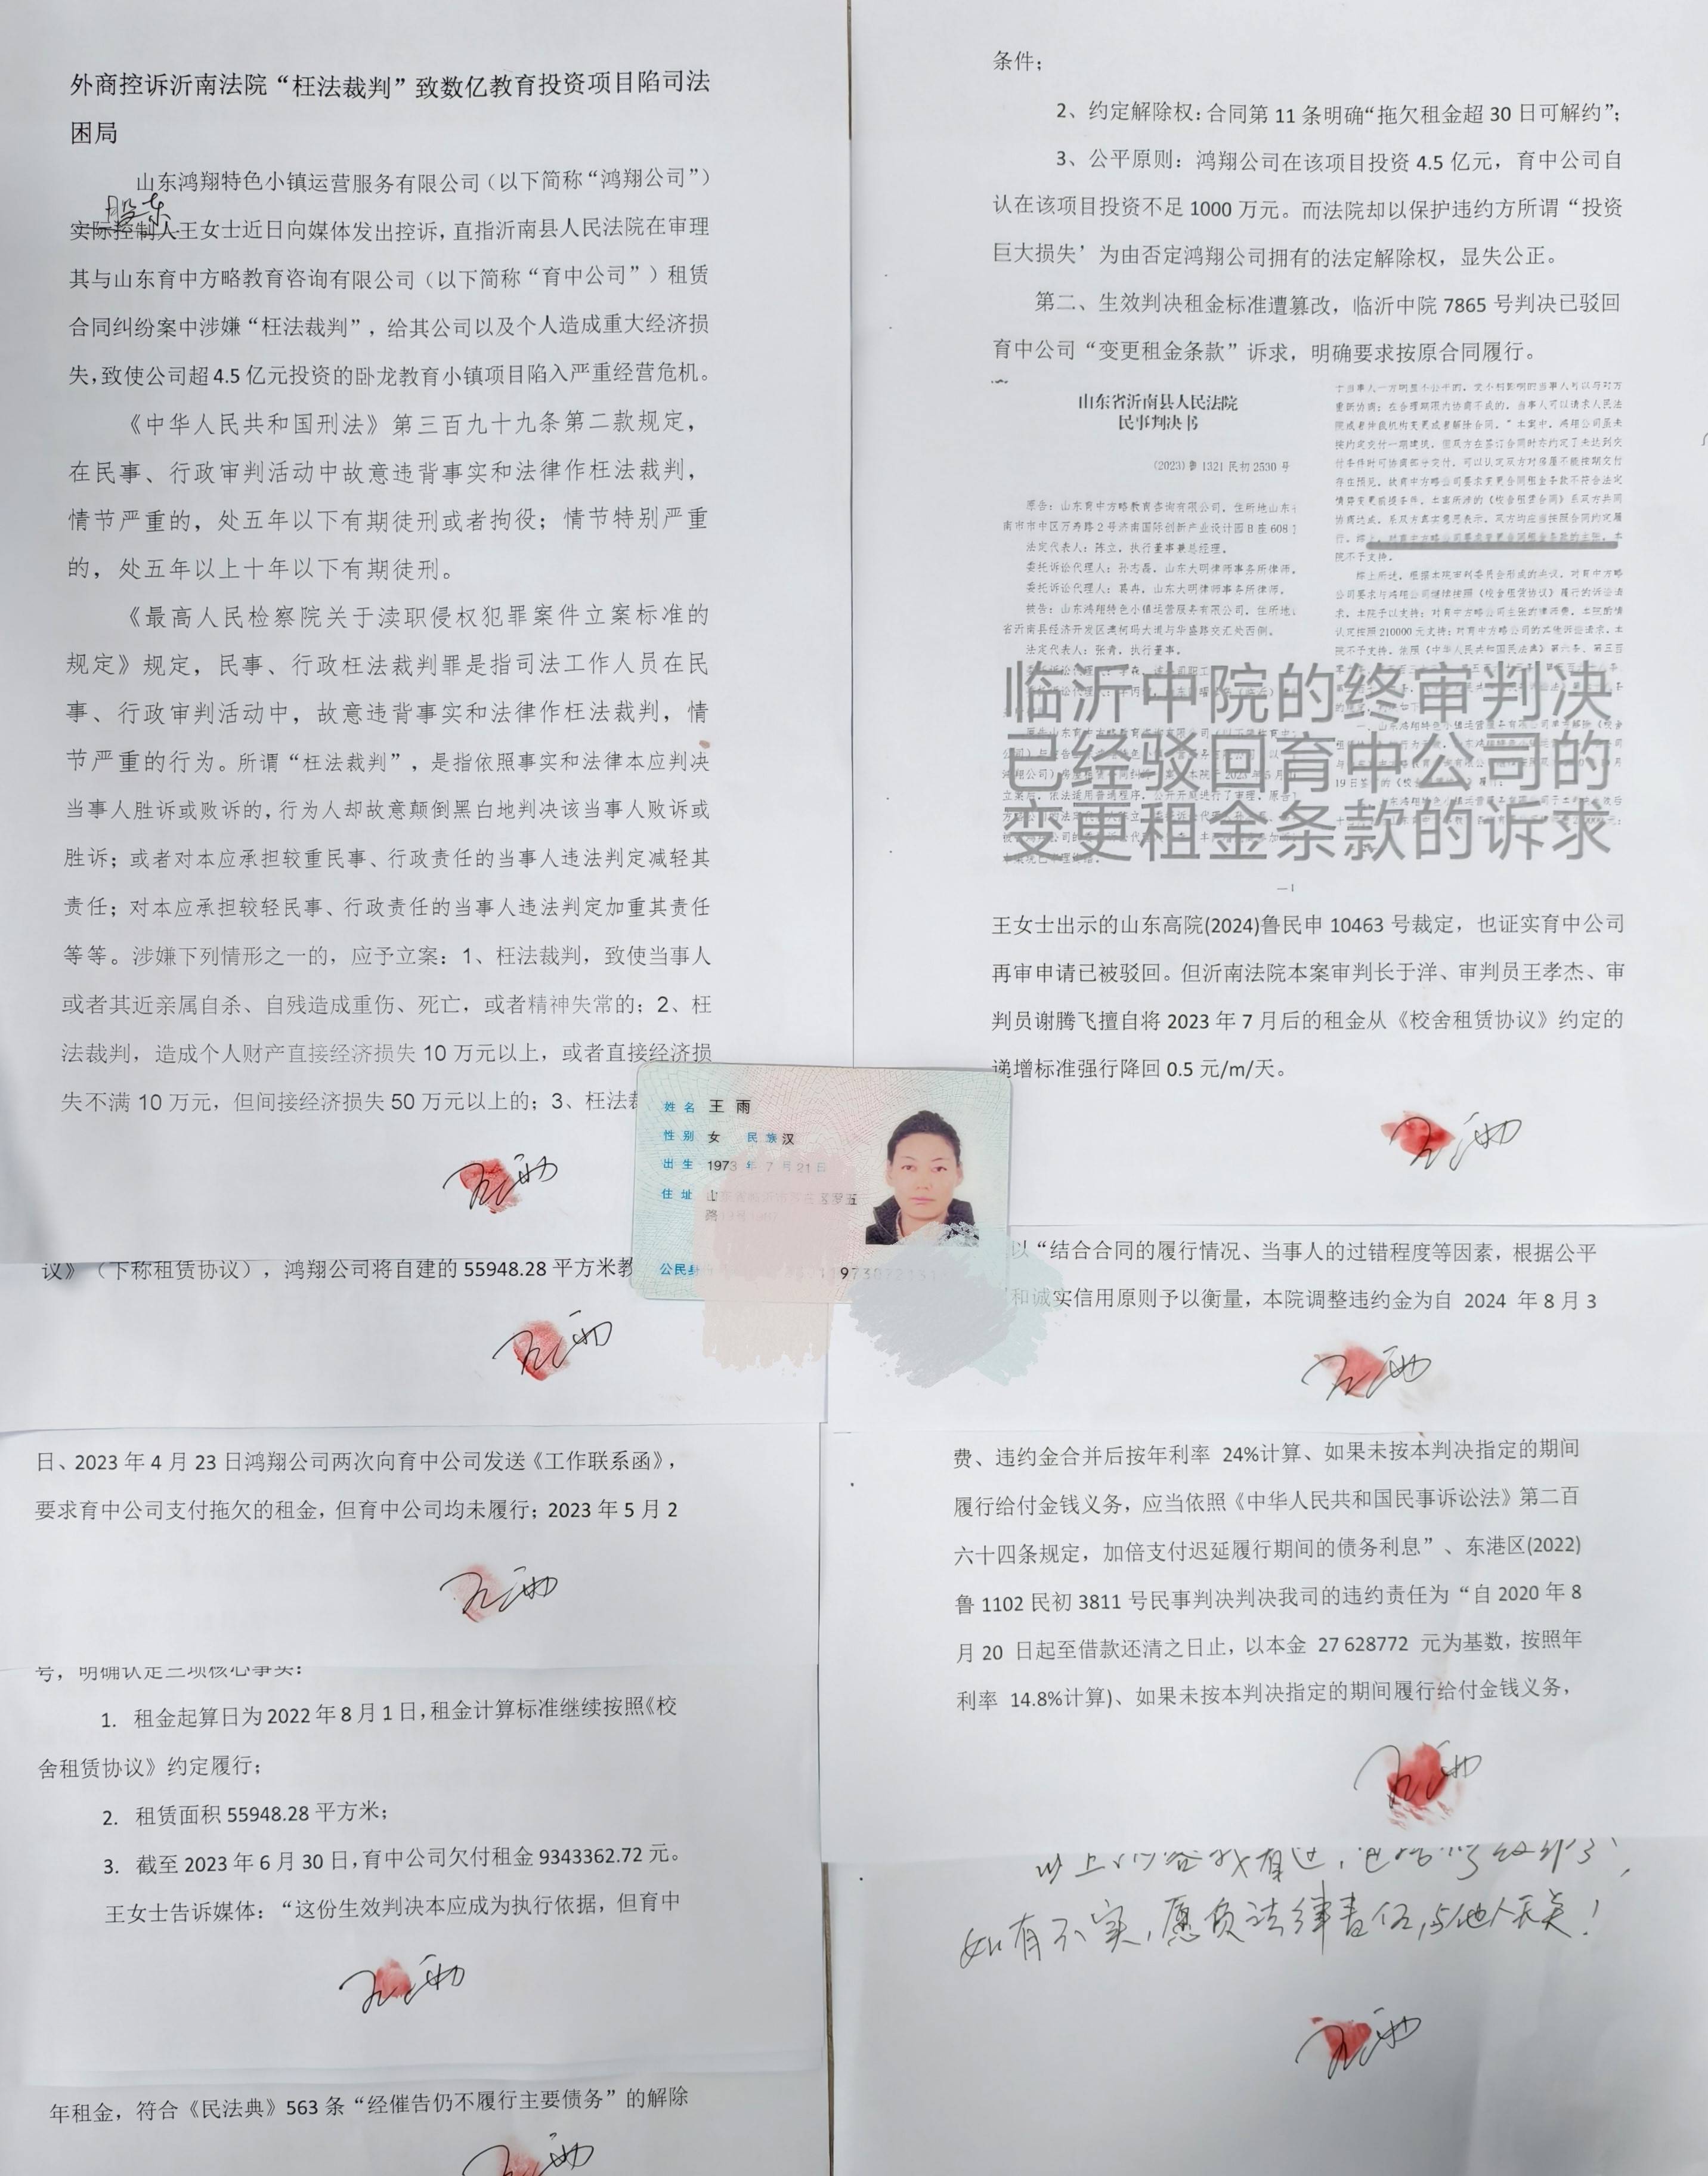 外商控诉沂南法院“枉法裁判”致数亿教育投资项目陷司法
困局
山东鸿翔特色小镇运营服务有限公司（以下简称“鸿翔公司”）
股东
实际控制人王女士近日向媒体发出控诉，直指沂南县人民法院在审理
其与山东育中方略教育咨询有限公司（以下简称“育中公司”）租赁
合同纠纷案中涉嫌“枉法裁判”，给其公司以及个人造成重大经济损
失，致使公司超4.5亿元投资的卧龙教育小镇项目陷入严重经营危机。
《中华人民共和国刑法》第三百九十九条第二款规定，
在民事、行政审判活动中故意违背事实和法律作枉法裁判，
情节严重的，处五年以下有期徒刑或者拘役；情节特别严重
的，处五年以上十年以下有期徒刑。
《最高人民检察院关于渎职侵权犯罪案件立案标准的
规定》规定，民事、行政枉法裁判罪是指司法工作人员在民
事、行政审判活动中，故意违背事实和法律作枉法裁判，情
节严重的行为。所谓“枉法裁判”，是指依照事实和法律本应判决
当事人胜诉或败诉的，行为人却故意颠倒黑白地判决该当事人败诉或
胜诉；或者对本应承担较重民事、行政责任的当事人违法判定减轻其
责任；对本应承担较轻民事、行政责任的当事人违法判定加重其责任
等等。涉嫌下列情形之一的，应予立案：1、枉法裁判，致使当事人
或者其近亲属自杀、自残造成重伤、死亡，或者精神失常的；2、枉
法裁判，造成个人财产直接经济损失10万元以上，或者直接经济损
失不满10万元，但间接经济损失50万元以上的；3、枉法裁
王雨
议》（下称租赁协议），鸿翔公司将自建的55948.28平方米教
王雨
日、2023年4月23日鸿翔公司两次向育中公司发送《工作联系函》，
要求育中公司支付拖欠的租金，但育中公司均未履行；2023年5月2
王雨
号，明确认定三项核心事实：
1. 租金起算日为2022年8月1日，租金计算标准继续按照《校
舍租赁协议》约定履行；
2. 租赁面积55948.28平方米；
3. 截至2023年6月30日，育中公司欠付租金9343362.72元。
王女士告诉媒体：“这份生效判决本应成为执行依据，但育中
王雨
年租金，符合《民法典》563条“经催告仍不履行主要债务”的解除
王雨
姓名 王雨
性别 女 民族 汉
出生 1973年7月21日
住址
公民身
条件；
2、约定解除权：合同第11条明确“拖欠租金超30日可解约”；
3、公平原则：鸿翔公司在该项目投资4.5亿元，育中公司自
认在该项目投资不足1000万元。而法院却以保护违约方所谓“投资
巨大损失’为由否定鸿翔公司拥有的法定解除权，显失公正。
第二、生效判决租金标准遭篡改，临沂中院7865号判决已驳回
育中公司“变更租金条款”诉求，明确要求按原合同履行。
山东省沂南县人民法院
民事判决书
（2023）鲁1321民初2530号
原告：山东育中方略教育咨询有限公司，住所地山东
南市市中区万寿路2号济南国际创新产业设计园B座608
法定代表人：陈立，执行董事兼总经理。
委托诉讼代理人：孙志磊，山东大明律师事务所律师。
委托诉讼代理人：葛冉，山东大明律师事务所律师。
被告：山东鸿翔特色小镇运营服务有限公司，住所地
省沂南县经济开发区澳柯玛大道与华盛路交汇处西侧。
法定代表人：张青，执行董事。
于当事人一方明显不公平的，受不利影响的当事人可以与对方
重新协商；在合理期限内协商不成的，当事人可以请求人民法
院或者仲裁机构变更或者解除合同。”本案中，鸿翔公司虽未
按约定交付一期建筑，但双方在签订合同时亦约定了未达到交
付条件时可协商部分交付，可以认定双方对房屋不能按期交付
存在预见，故育中方略公司要求变更合同租金条款不符合法定
情势变更前提条件。本案所涉的《校舍租赁合同》系双方共同
协商达成，系双方真实意思表示，双方均应当按照合同约定履
行。综上，对育中方略公司要求变更合同租金条款的主张，本
院不予支持。
综上所述，根据本院审判委员会形成的决议，对育中方略
公司要求与鸿翔公司继续按照《校舍租赁协议》履行的诉讼请
求，本院予以支持；对育中方略公司主张的律师费，本院酌情
认定按照210000元支持；对育中方略公司的其他诉讼请求，本
院不予支持。依照《中华人民共和国民法典》第六条、第三百
临沂中院的终审判决
已经驳回育中公司的
变更租金条款的诉求
王女士出示的山东高院(2024)鲁民申10463号裁定，也证实育中公司
再审申请已被驳回。但沂南法院本案审判长于洋、审判员王孝杰、审
判员谢腾飞擅自将2023年7月后的租金从《校舍租赁协议》约定的
递增标准强行降回0.5元/m/天。
王雨
以“结合合同的履行情况、当事人的过错程度等因素，根据公平
和诚实信用原则予以衡量，本院调整违约金为自 2024 年8月3
王雨
费、违约金合并后按年利率 24%计算、如果未按本判决指定的期间
履行给付金钱义务，应当依照《中华人民共和国民事诉讼法》第二百
六十四条规定，加倍支付迟延履行期间的债务利息”、东港区(2022)
鲁1102民初3811号民事判决判决我司的违约责任为“自2020年8
月20 日起至借款还清之日止，以本金 27628772 元为基数，按照年
利率 14.8%计算)、如果未按本判决指定的期间履行给付金钱义务，
王雨
以上内容我
如有不实，愿负法律责任，与他人无关！
王雨